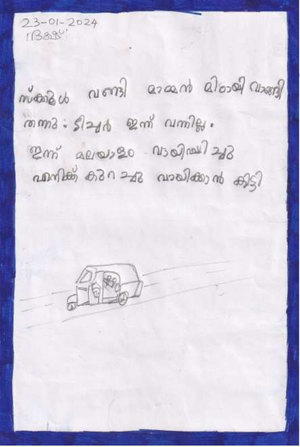 23-01-2024
സ്ക്കൂൾ വണ്ടി മാമ്മൻ മിഠായി വാങ്ങി
തന്നു. ടീച്ചർ ഇന്ന് വന്നില്ല.
ഇന്ന് മലയാളം വായിപ്പിച്ചു
എനിക്ക് കുറച്ചു വായിക്കാൻ കിട്ടി